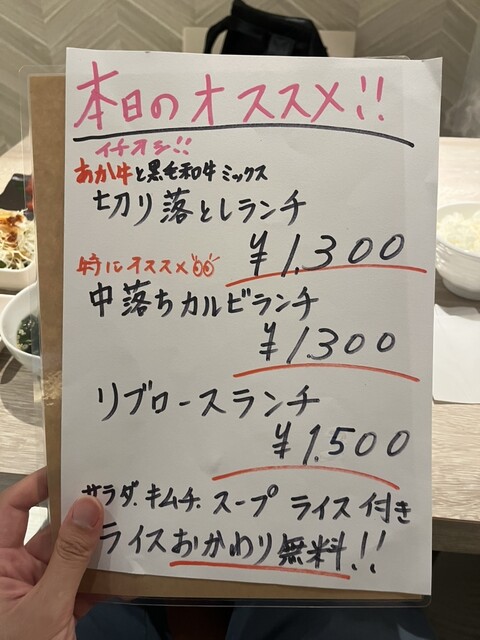 本日のオススメ!!
イチオシ!!
あか牛と黒毛和牛ミックス
切り落としランチ
¥1.300
特にオススメ
中落ちカルビランチ
¥1.300
リブロースランチ
¥1.500
サラダ.キムチ.スープ ライス付き
ライスおかわり無料!!